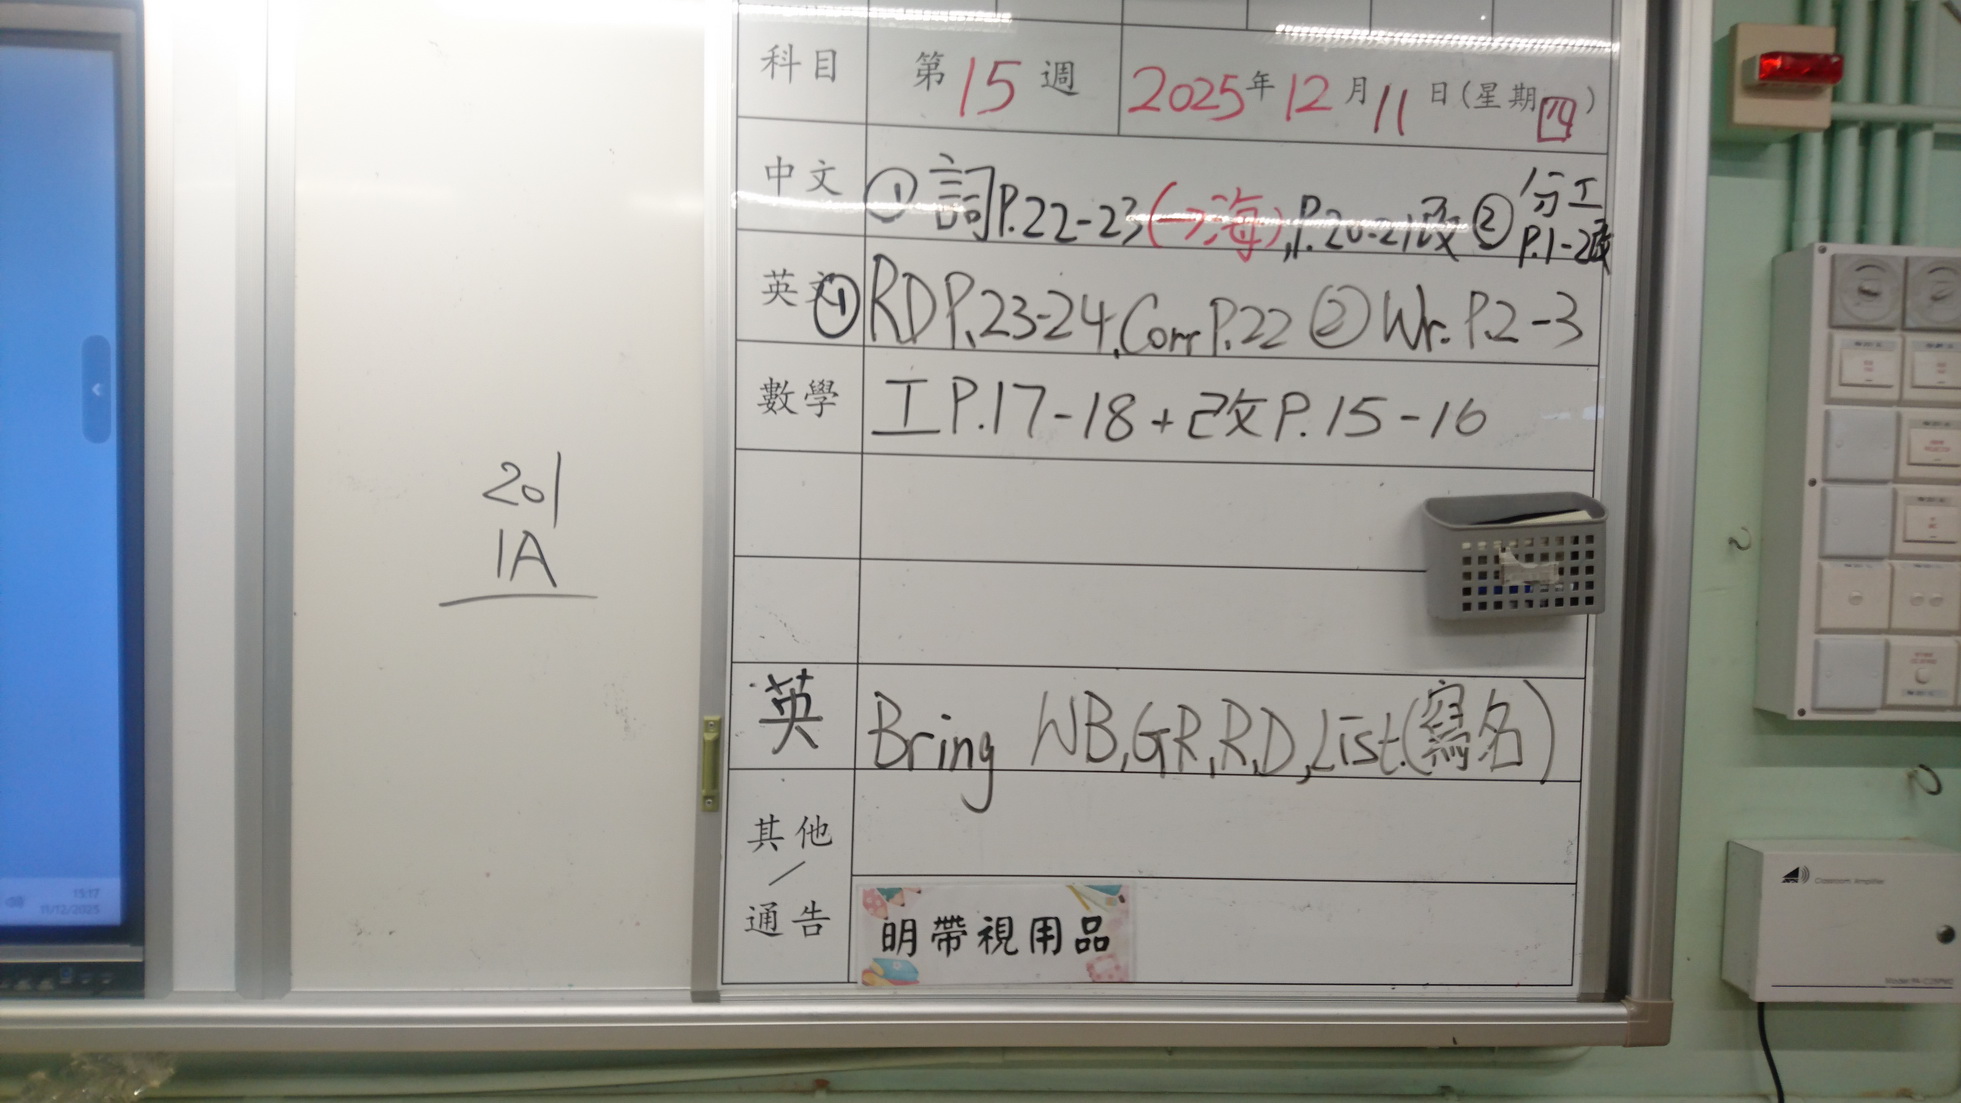 科目 第15週 2025年12月11日(星期四)
中文 ①詞P.22-23(→海),P.20-21改 ②分工
P.1-2改
英文 ①RD P.23-24,Corr P.22 ②Wr. P.2-3
數學 工P.17-18+改P.15-16
201
1A
英 Bring WB,GR,RD,List.(寫名)
其他
/
通告 明帶視用品
15:17
11/12/2025
Classroom Amplifier